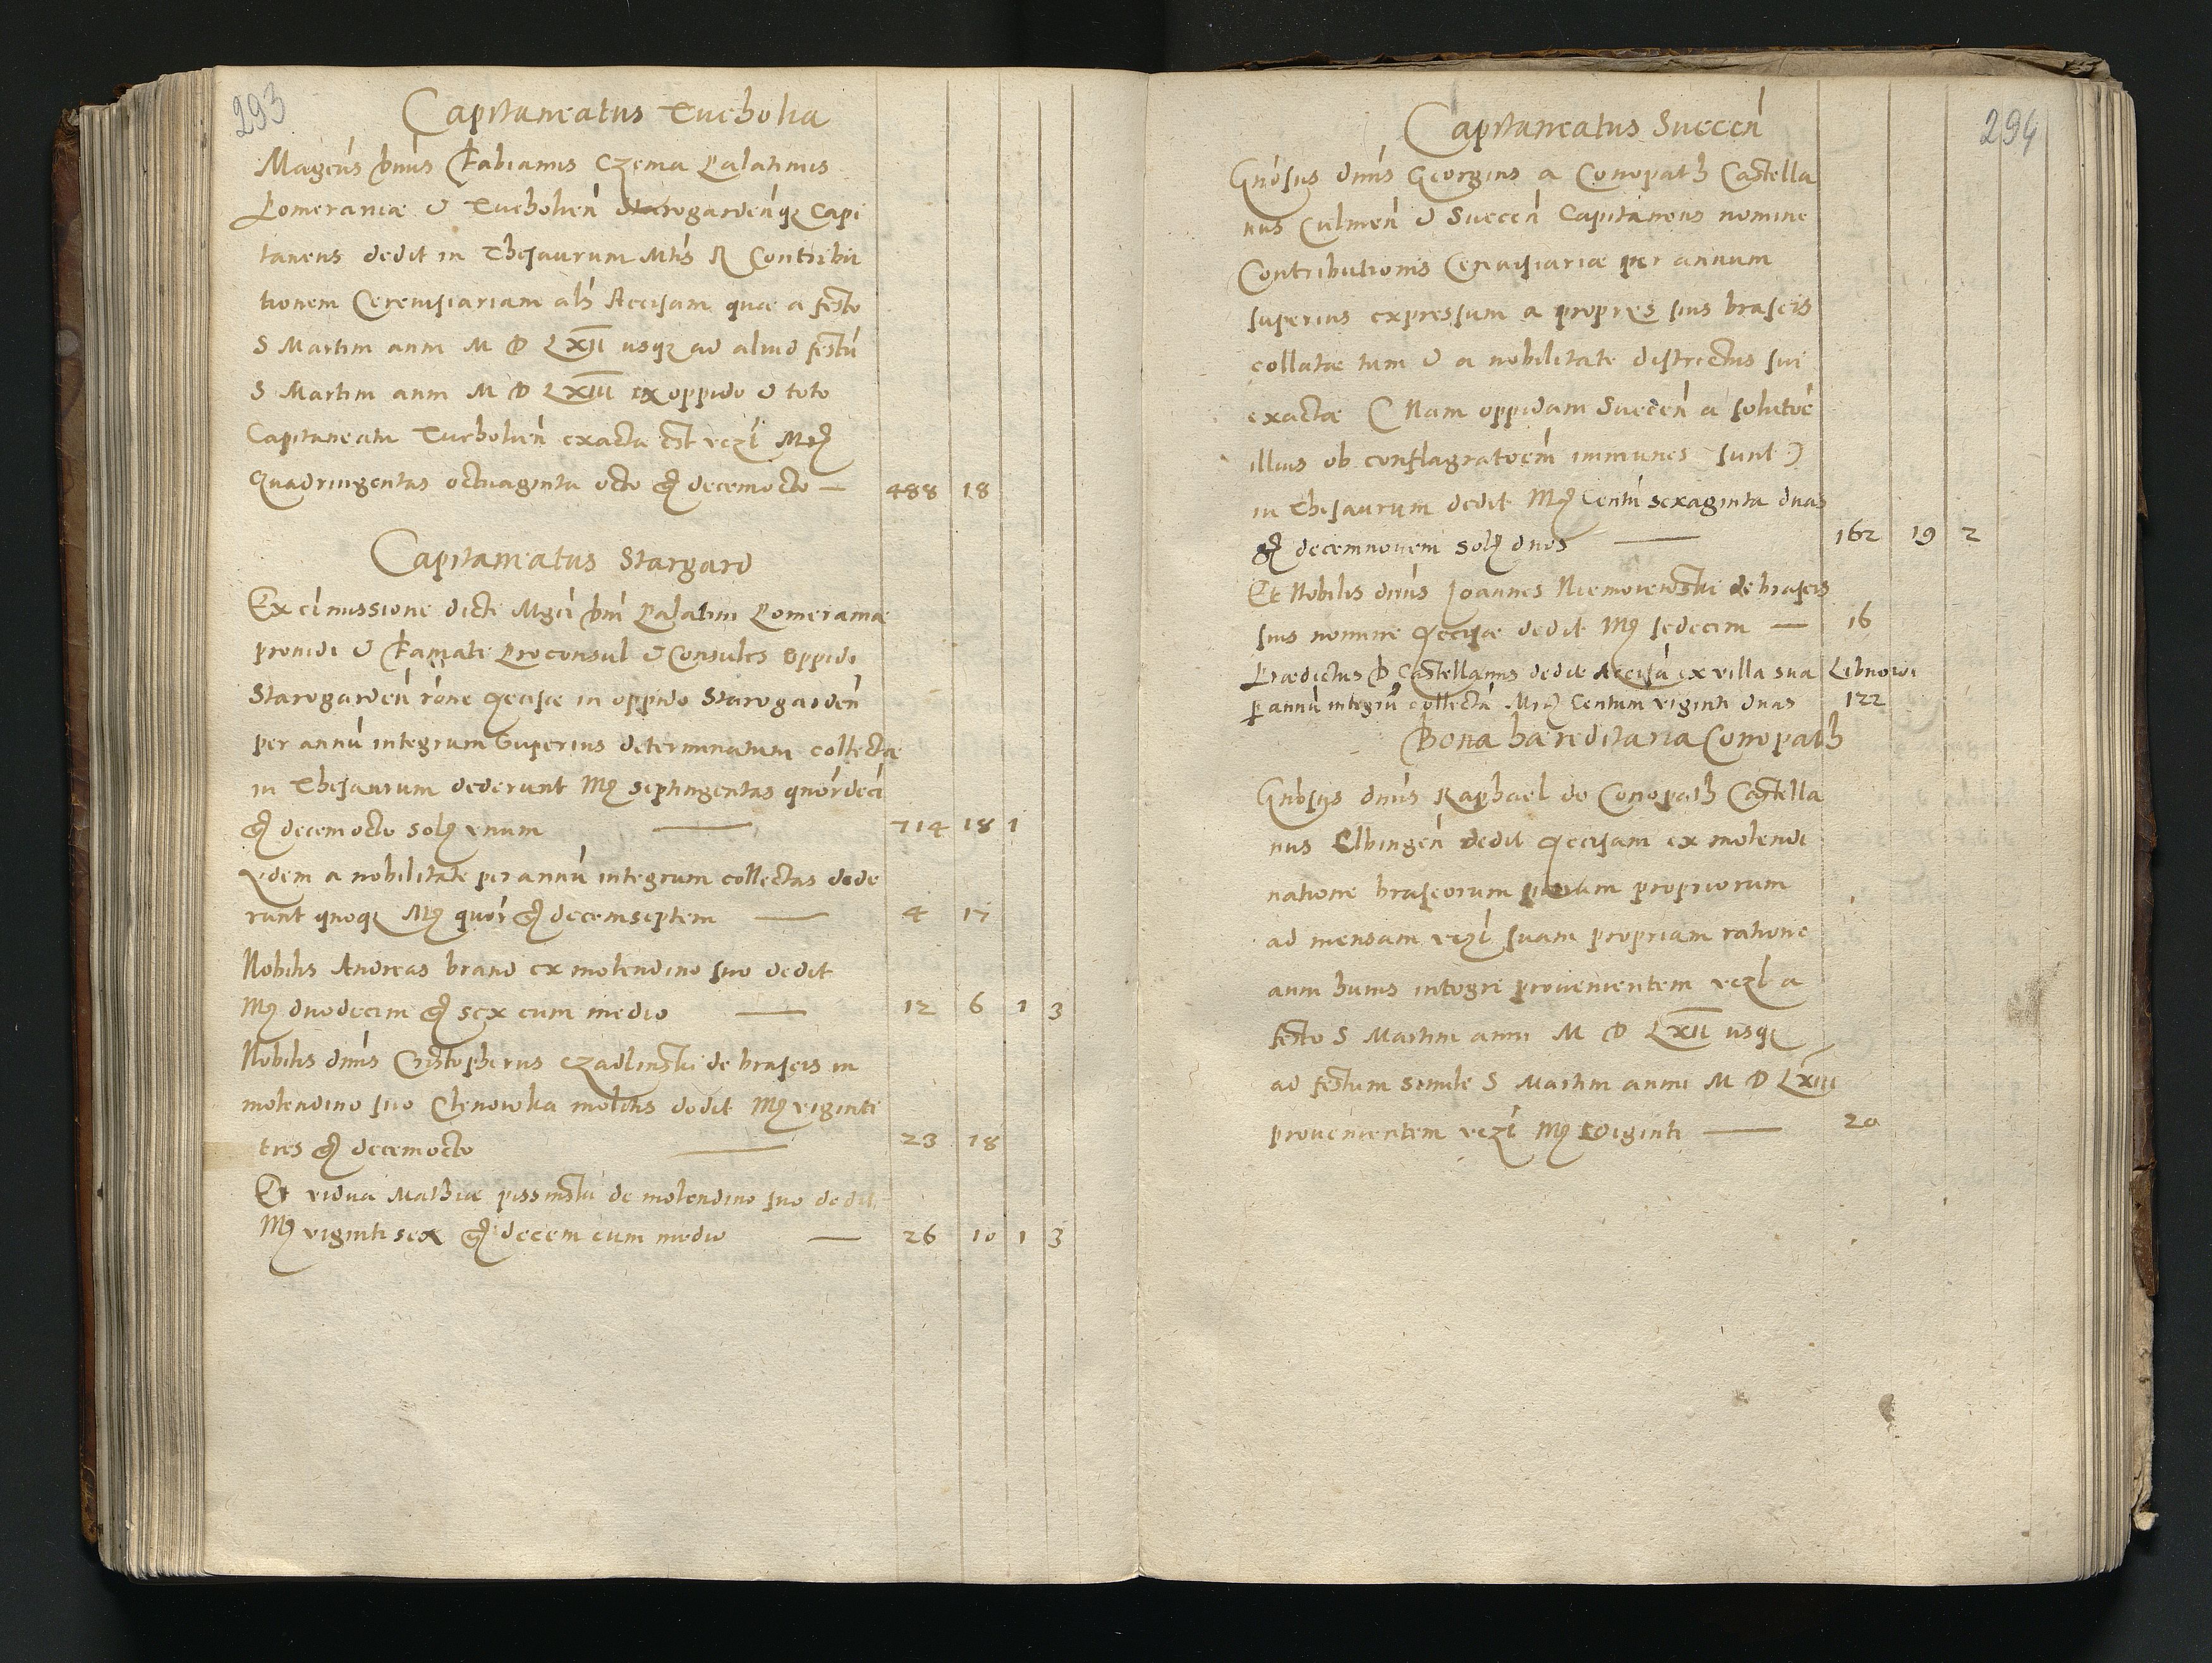 293
Capitaneatus Tucholia
Magcus dnus Fabianus Czema Palatinus
Pomeraniæ & Tucholien Starogardenqz Capi
taneus dedit in Thesaurum Mtis R Contribu
tionem Cereuisiariam als Accisam quæ a festo
S Martini anni M D LXII usqz ad aliud festu
S Martini anni M D LXIII ex oppido & toto
Capitaneatu Tucholien exacta est vczl Mrc
Quadringentas octuaginta octo gr decemocto — 488 18
Capitaneatus Stargard
Ex cimissione dicti Mgci dni Palatini Pomeraniæ
prouidi & Famati Proconsul & Consules Oppidi
Starogarden rone Accisæ in oppido Starogarden
per annu integrum Superius determinatum collectæ
in Thesaurum dederunt Mrc septingentas quordeci
gr decemocto sol vnum — 714 18 1
Idem a nobilitate per annu integrum collectas dede
runt quoqz Mrc quor gr decemseptem — 4 17
Nobilis Andreas brand ex molendino suo dedit
Mrc duodecim gr sex cum medio — 12 6 1 3
Nobilis dnus Cristopherus Czadlinski de braseis in
molendino suo Clenowka molitis dedit Mrc viginti
tres gr decemocto — 23 18
Et vidua Mathiæ pissinski de molendino suo dedit
Mrc viginti sex gr decem cum medio — 26 10 1 3
294
Capitaneatus Suecen
Gnosus dnus Georgius a Conopath Castella
nus Culmen & Suecen Capitaneus nomine
Contributionis Ceruisiariæ per annum
superius expressum a propres suis braseis
collatæ tum & a nobilitate districtus sui
exactæ ( Nam oppidam Suecen a solutoe
illius ob conflagratoem immunes sunt )
in Thesaurum dedit Mrc Centu sexaginta duas
gr decemnouem sol duos — 162 19 2
Et Nobilis dnus Joannes Niemoiewski de braseis
suis nomine Accisæ dedit Mrc sedecim — 16
Prædictus D Castellanus dedit Accisa ex villa sua Libnowi
p annu integru collecta Mrc Centum viginti duas 122
Bona hæreditaria Conopath
Gnosus dnus Raphael de Conopath Castella
nus Elbingen dedit Accisam ex molendi
natione braseorum propriorum
ad mensam vczl suam propriam ratione
anni huius integri prouenientem vczl a
festo S Martini anni M D LXII usqz
ad festum simile S Martini anni M D LXIII
prouenientem vczl Mrc viginti — 20